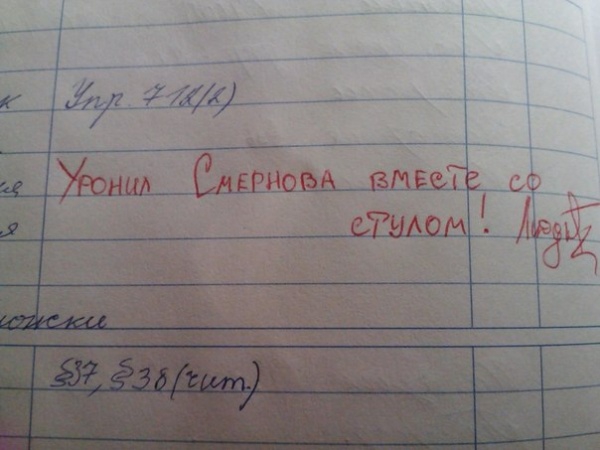 к Упр. 718(2)
ия Уронил Смернова вместе со
я стулом!
ложки
§37, §38 (чит.)